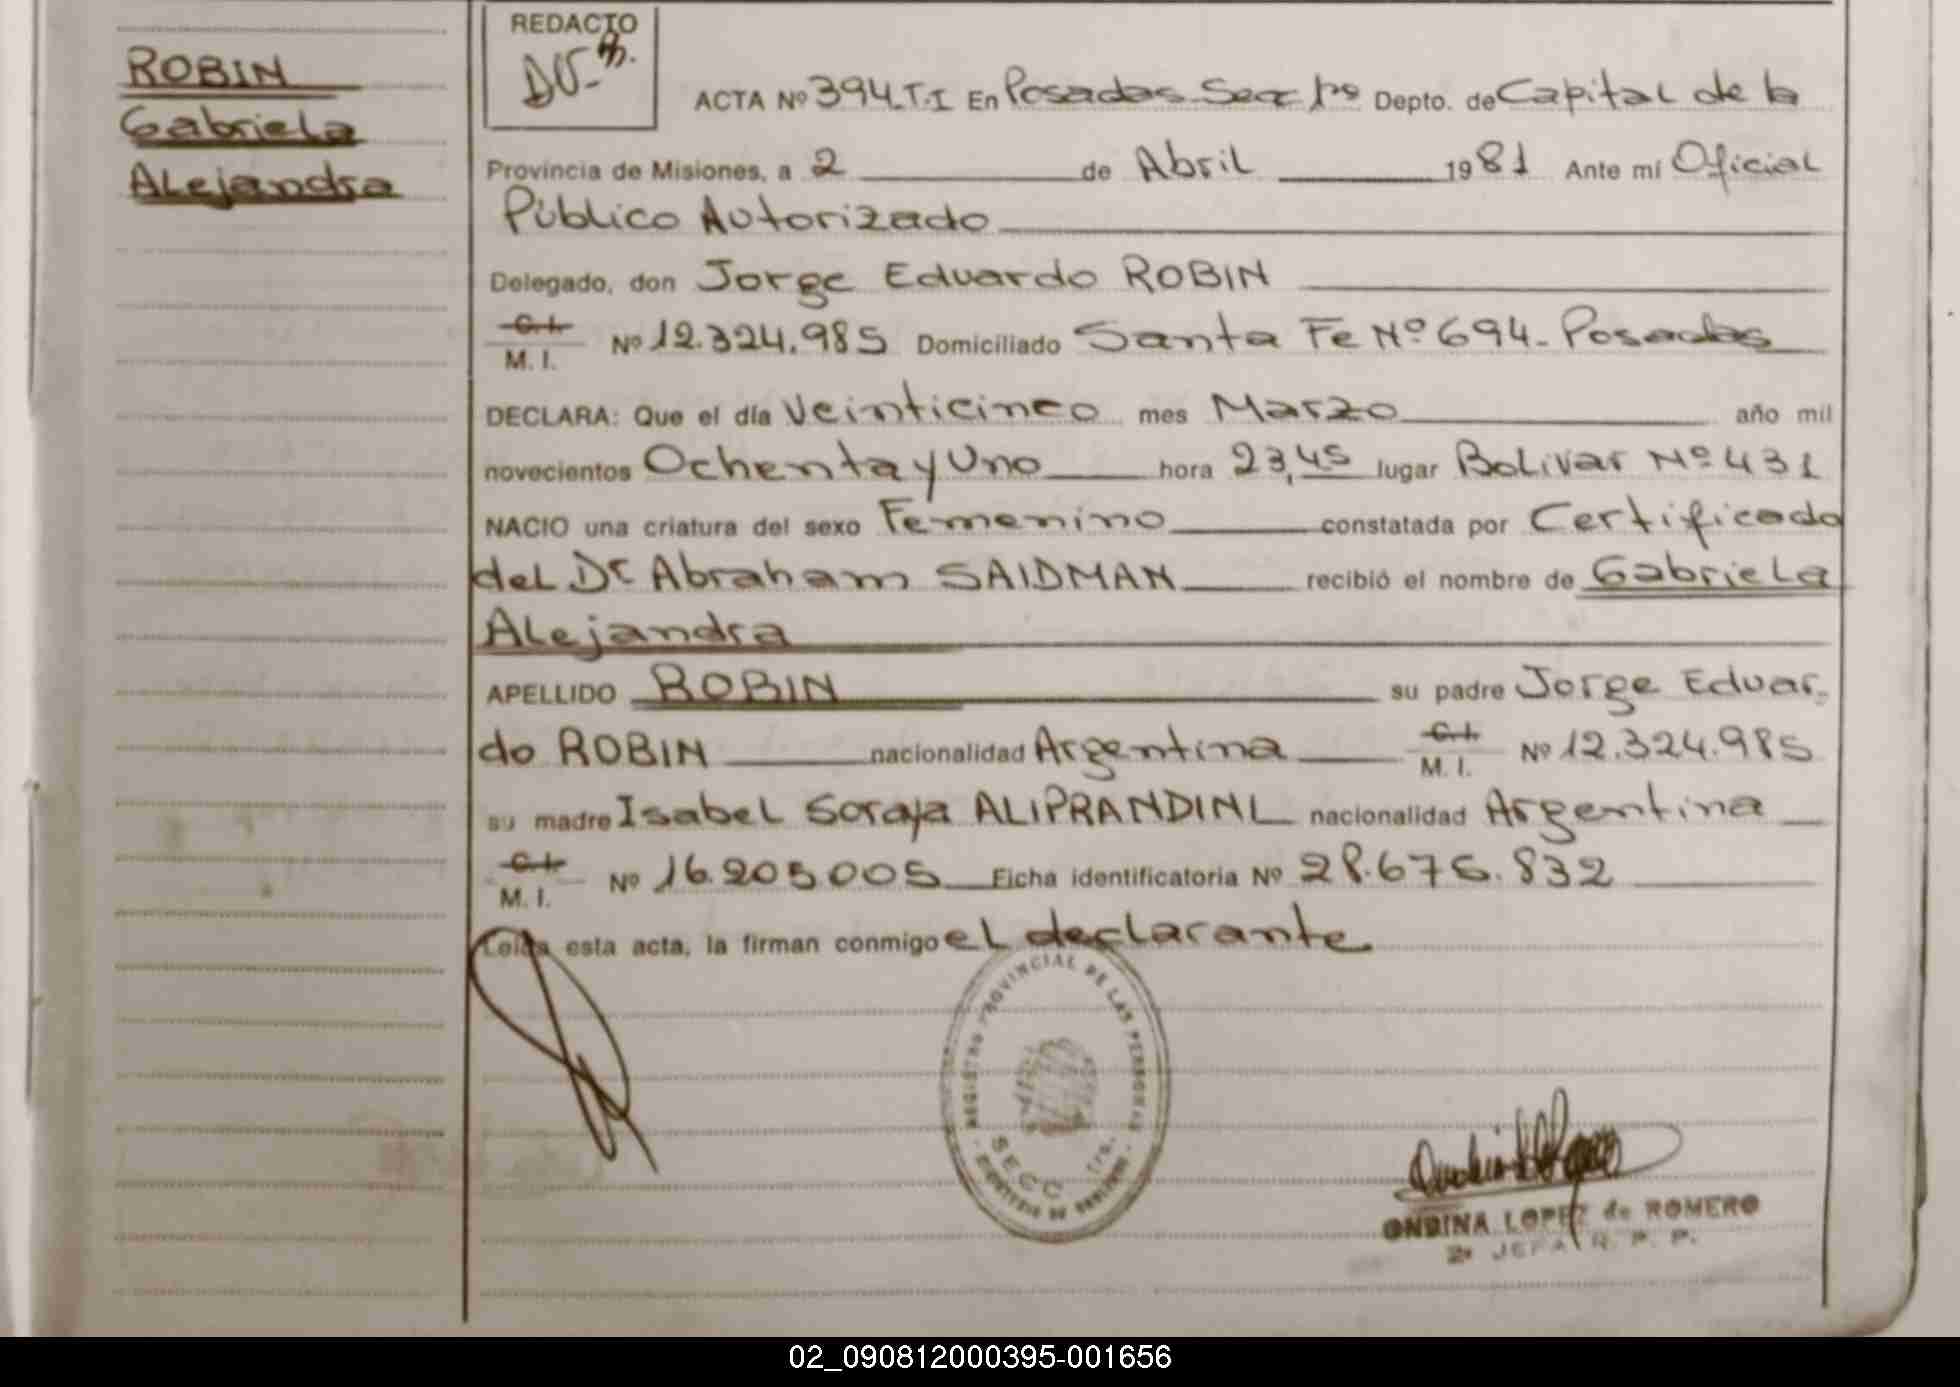 ROBIN
Gabriela
Alejandra
REDACTO
ACTA Nº 394.T.I En Posadas Secc 1ra Depto. de Capital de la
Provincia de Misiones, a 2 de Abril 1981 Ante mí Oficial
Público Autorizado
Delegado, don Jorge Eduardo ROBIN
C.I.
M. I. Nº 12.324.985 Domiciliado Santa Fe Nº 694 - Posadas
DECLARA: Que el día Veinticinco mes Marzo año mil
novecientos Ochenta y Uno hora 23,45 lugar Bolivar Nº 431
NACIO una criatura del sexo Femenino constatada por Certificado
del Dr Abraham SAIDMAN recibió el nombre de Gabriela
Alejandra
APELLIDO ROBIN su padre Jorge Eduar-
do ROBIN nacionalidad Argentina C.I. M. I. Nº 12.324.985
su madre Isabel Soraja ALIPRANDINI nacionalidad Argentina
C.I.
M. I. Nº 16.205.005 Ficha identificatoria Nº 28.676.832
Leída esta acta, la firman conmigo el declarante
REGISTRO PROVINCIAL DE LAS PERSONAS
SECC. 1ra.
ONDINA LOPEZ de ROMERO
2ª JEFA R. P. P.
02_090812000395-001656